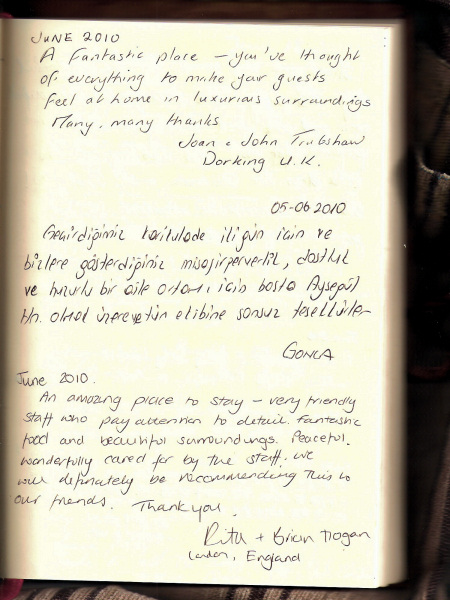 JUNE 2010
A Fantastic place - you've thought
of everything to make your guests
feel at home in luxurious surroundings
Many, many thanks
Joan + John Trubshaw
Dorking U.K.
05-06 2010
Geçirdiğimiz harikulade iki gün için ve
bizlere gösterdiğiniz misafirperverlik, dostluk
ve huzurlu bir aile ortamı için başta Ayşegül
Hn. olmak üzere tüm ekibine sonsuz teşekkürler
GONCA
June 2010.
An amazing place to stay - very friendly
staff who pay attention to detail. Fantastic
food and beautiful surroundings. Peaceful.
wonderfully cared for by the staff. We
will definately be recommending this to
our friends. Thank you.
Rita + Brian Hogan
London, England